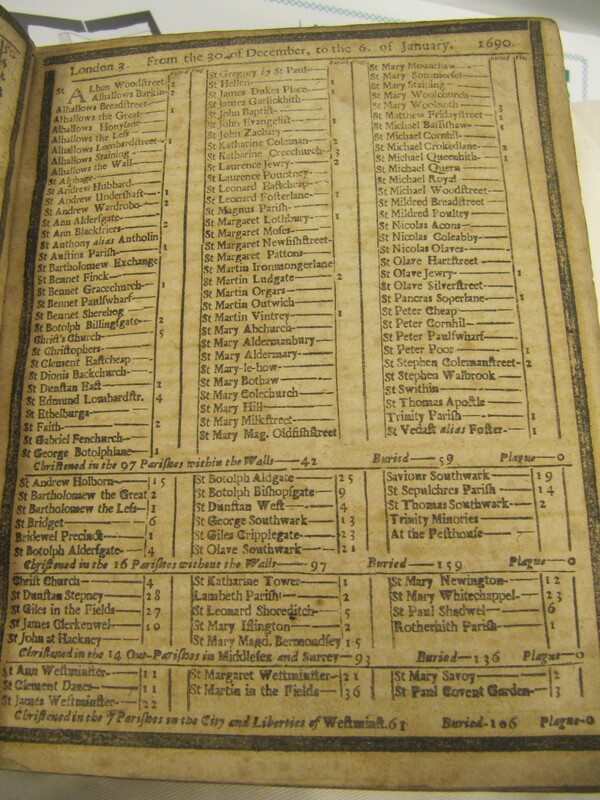 London 3. From the 30. of December, to the 6. of January. 1690.
St Alban Woodstreet- 2
Alhallows Barkin- 2
Alhallows Breadstreet-
Alhallows the Great- 1
Alhallows Honylane-
Alhallows the Less-
Alhallows Lombardstreet- 1
Alhallows Staining-
Alhallows the Wall-
St Alphage-
St Andrew Hubbard-
St Andrew Undershaft- 1
St Andrew Wardrobe- 2
St Ann Aldersgate-
St Ann Blackfriers- 2
St Anthony alias Antholin
St Austins Parish- 1
St Bartholomew Exchange
St Bennet Finck-
St Bennet Gracechurch- 1
St Bennet Paulswharf-
St Bennet Sherehog
St Botolph Billingsgate- 2
Christ's Church- 5
St Christophers-
St Clement Eastcheap-
St Dionis Backchurch-
St Dunstan East- 2
St Edmund Lombardstr. 4
St Ethelburga-
St Faith- 2
St Gabriel Fenchurch-
St George Botolphlane- 1
St Gregory by St Paul-
St Hellen- 1
St James Dukes Place- 1
St James Garlickhith-
St John Baptist-
St John Evangelist- 1
St John Zachary-
St Katharine Coleman- 2
St Katharine Creechurch- 3
St Laurence Jewry- 2
St Laurence Pountney-
St Leonard Eastcheap-
St Leonard Fosterlane- 1
St Magnus Parish-
St Margaret Lothbury- 1
St Margaret Moses-
St Margaret Newfishstreet-
St Margaret Pattons-
St Martin Ironmongerlane
St Martin Ludgate- 2
St Martin Orgars-
St Martin Outwich-
St Martin Vintrey- 1
St Mary Abchurch-
St Mary Aldermanbury-
St Mary Aldermary-
St Mary-le-bow-
St Mary Bothaw-
St Mary Colechurch-
St Mary Hill-
St Mary Milkstreet-
St Mary Mag. Oldfishstreet
St Mary Mounthaw-
St Mary Sommerset-
St Mary Staining-
St Mary Woolchurch-
St Mary Woolnoth- 3
St Matthew Fridaystreet- 1
St Michael Bassishaw- 1
St Michael Cornhil-
St Michael Crokedlane- 2
St Michael Queenhith- 1
St Michael Quern-
St Michael Royal-
St Michael Woodstreet-
St Mildred Breadstreet-
St Mildred Poultry-
St Nicolas Acons-
St Nicolas Coleabby-
St Nicolas Olaves-
St Olave Hartstreet-
St Olave Jewry- 1
St Olave Silverstreet-
St Pancras Soperlane- 1
St Peter Cheap-
St Peter Cornhil-
St Peter Paulswharf-
St Peter Poor- 1
St Stephen Colemanstreet- 2
St Stephen Walbrook-
St Swithin-
St Thomas Apostle-
Trinity Parish- 1
St Vedast alias Foster- 1
Christened in the 97 Parishes within the Walls- 42 Buried- 59 Plague-0
St Andrew Holborn- 15
St Bartholomew the Great 2
St Bartholomew the Less- 1
St Bridget- 6
Bridewel Precinct- 1
St Botolph Aldersgate- 4
St Botolph Aldgate- 25
St Botolph Bishopsgate- 9
St Dunstan West- 4
St George Southwark- 13
St Giles Cripplegate- 23
St Olave Southwark- 21
Saviour Southwark- 19
St Sepulchres Parish- 14
St Thomas Southwark- 2
Trinity Minories-
At the Pesthouse-
Christened in the 16 Parishes without the Walls- 97 Buried- 159 Plague-0
Christ Church- 4
St Dunstan Stepney- 28
St Giles in the Fields- 27
St James Clerkenwel- 10
St John at Hackney-
St Katharine Tower- 1
Lambeth Parish- 2
St Leonard Shoreditch- 5
St Mary Islington- 2
St Mary Magd. Bermondsey 15
St Mary Newington- 12
St Mary Whitechappel- 23
St Paul Shadwel- 6
Rotherhith Parish- 1
Christened in the 14 Out-Parishes in Middlesex and Surrey- 93 Buried- 136 Plague-0
St Ann Westminster- 11
St Clement Danes- 11
St James Westminster- 22
St Margaret Westminster- 21
St Martin in the Fields- 36
St Mary Savoy- 2
St Paul Covent Garden- 3
Christened in the 7 Parishes in the City and Liberties of Westminst. 61 Buried- 106 Plague-0